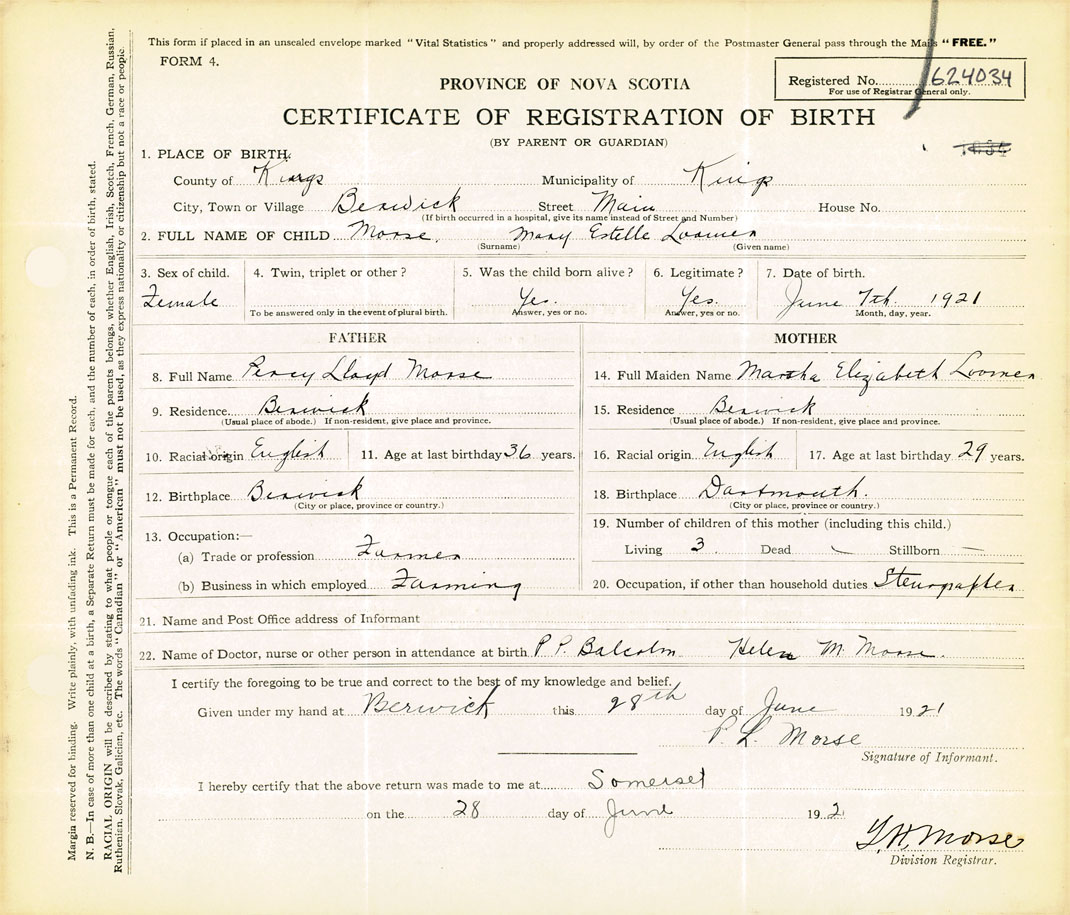 This form if placed in an unsealed envelope marked "Vital Statistics" and properly addressed will, by order of the Postmaster General pass through the Mails "FREE."
FORM 4.
Registered No. 624034
For use of Registrar General only.
PROVINCE OF NOVA SCOTIA
CERTIFICATE OF REGISTRATION OF BIRTH
(BY PARENT OR GUARDIAN)
1. PLACE OF BIRTH.
County of Kings Municipality of Kings
City, Town or Village Berwick Street Main House No.
(If birth occurred in a hospital, give its name instead of Street and Number)
2. FULL NAME OF CHILD Morse, Mary Estelle Loomer
(Surname) (Given name)
3. Sex of child. 4. Twin, triplet or other? 5. Was the child born alive? 6. Legitimate? 7. Date of birth.
Female Yes. Yes. June 7th. 1921
To be answered only in the event of plural birth. Answer, yes or no. Answer, yes or no. Month, day, year.
FATHER
8. Full Name Percy Lloyd Morse
9. Residence Berwick
(Usual place of abode.) If non-resident, give place and province.
10. Racial origin English 11. Age at last birthday 36 years.
12. Birthplace Berwick
(City or place, province or country.)
13. Occupation:—
(a) Trade or profession Farmer
(b) Business in which employed Farming
MOTHER
14. Full Maiden Name Martha Elizabeth Loomer
15. Residence Berwick
(Usual place of abode.) If non-resident, give place and province.
16. Racial origin English 17. Age at last birthday 29 years.
18. Birthplace Dartmouth.
(City or place, province or country.)
19. Number of children of this mother (including this child.)
Living 3. Dead — Stillborn —
20. Occupation, if other than household duties Stenographer
21. Name and Post Office address of Informant
22. Name of Doctor, nurse or other person in attendance at birth P. P. Balcolm Helen M. Morse.
I certify the foregoing to be true and correct to the best of my knowledge and belief.
Given under my hand at Berwick this 28th day of June 1921
P. L. Morse
Signature of Informant.
I hereby certify that the above return was made to me at Somerset
on the 28 day of June 1921
Morse
Division Registrar.
Margin reserved for binding. Write plainly, with unfading ink. This is a Permanent Record.
N. B.—In case of more than one child at a birth, a Separate Return must be made for each, and the number of each, in order of birth, stated.
RACIAL ORIGIN will be described by stating to what people or tongue each of the parents belongs, whether English, Irish, Scotch, French, German, Russian,
Ruthenian, Slovak, Galician, etc. The words "Canadian" or "American" must not be used, as they express nationality or citizenship but not a race or people.